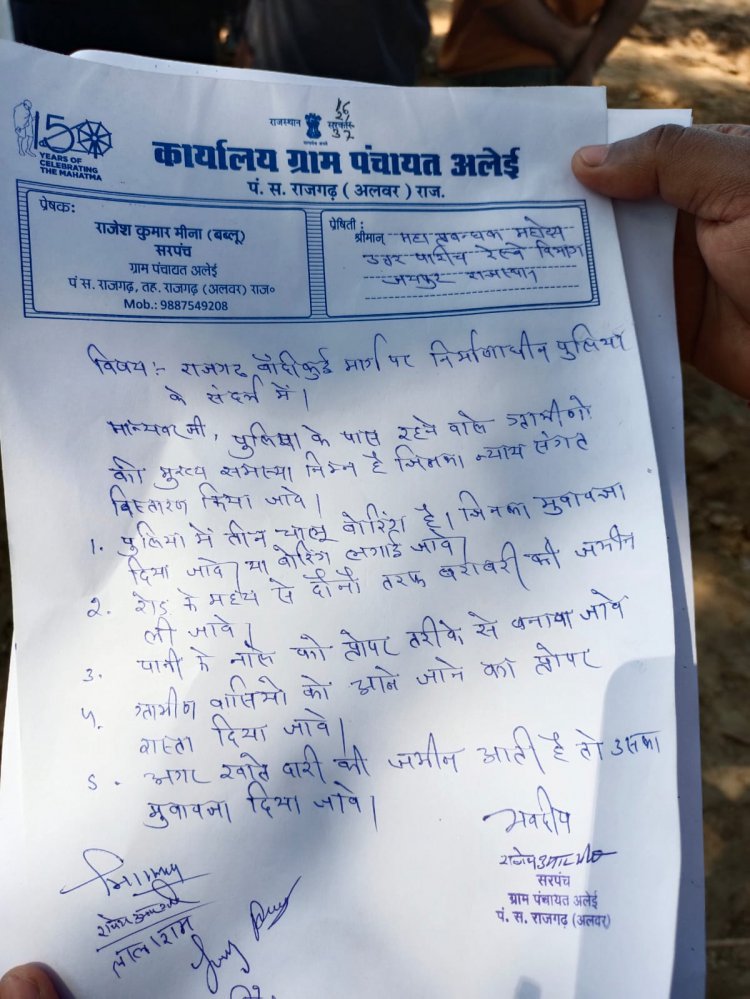 150
YEARS OF
CELEBRATING
THE MAHATMA
राजस्थान सरकार
कार्यालय ग्राम पंचायत अलेई
पं. स. राजगढ़ ( अलवर ) राज.
प्रेषक:
राजेश कुमार मीना (बब्लू)
सरपंच
ग्राम पंचायत अलेई
पं स. राजगढ़, तह. राजगढ़ (अलवर) राज०
Mob.: 9887549208
प्रेषिती :
श्रीमान् महा प्रबन्धक महोदय
उत्तर रेल्वे विभाग
जयपुर राजस्थान
विषय:- राजगढ बाँदीकुई मार्ग पर निर्माणाधीन पुलिया
के संदर्भ में।
मान्यवर जी, पुलिया के पास रहने वाले ग्रामीणो
की मुख्य समस्या निम्न है जिनका न्याय संगत
किया जावे।
1. पुलिया में तीन चालू बोरिंग है। जिनका मुवावजा
दिया जावे या बोरिंग लगाई जावे।
2. रोड के मध्य से दौनों तरफ बराबरी की जमीन
ली जावे।
3. पानी के नाले को प्रोपर तरीके से बनाया जावे
4. ग्रामीण वासियो को आने जाने का प्रोपर
रास्ता दिया जावे।
5. अगर खाते दारी की जमीन आती है तो उसका
मुवावजा दिया जावे।
भवदीय
सरपंच
ग्राम पंचायत अलेई
पं. स. राजगढ़ (अलवर)
लालाराम